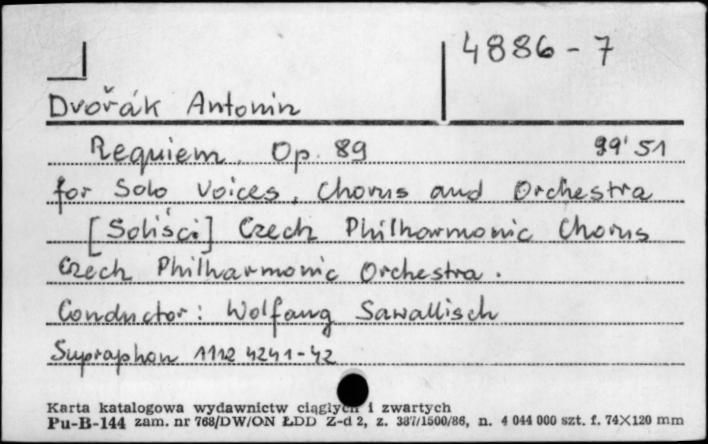 4886-7
Dvořák Antonin
Requiem. Op. 89 99'51
for Solo Voices, Chorus and Orchestra
[Soliści] Czech Philharmonic Chorus
Czech Philharmonic Orchestra.
Conductor: Wolfang Sawallisch
Supraphon 1112 4241-42
Karta katalogowa wydawnictw ciągłych i zwartych
Pu-B-144 zam. nr 768/DW/ON ŁDD Z-d 2, z. 387/1500/86, n. 4 044 000 szt. f. 74×120 mm